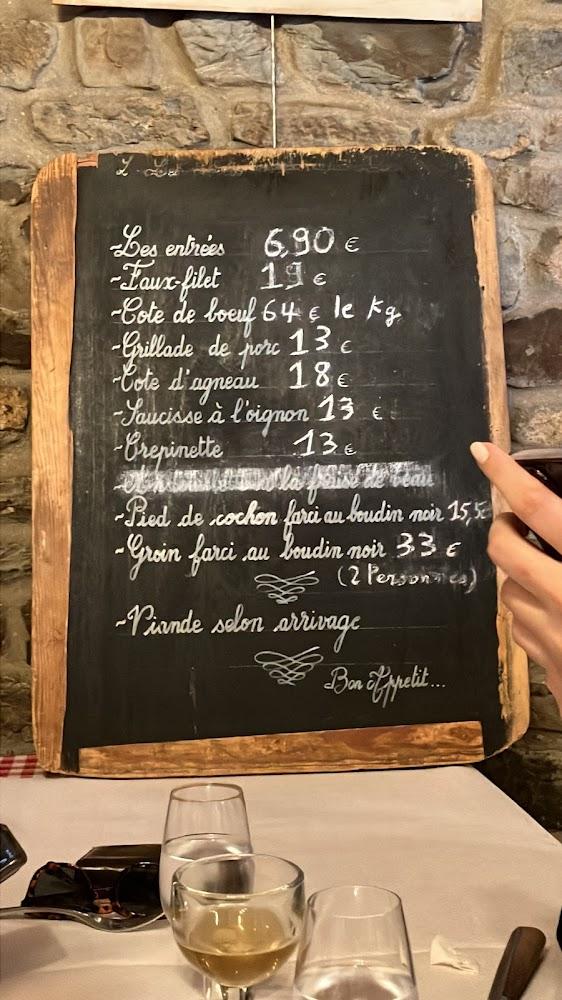 ~Les entrées 6,90 €
~Faux-filet 19 €
~Cote de boeuf 64 € le Kg
~Grillade de porc 13 €
~Cote d'agneau 18 €
~Saucisse à l'oignon 13 €
~Crepinette 13 €
la fraise de veau
~Pied de cochon farci au boudin noir 15,5
~Groin farci au boudin noir 33 €
(2 Personnes)
~Viande selon arrivage
Bon Appetit...